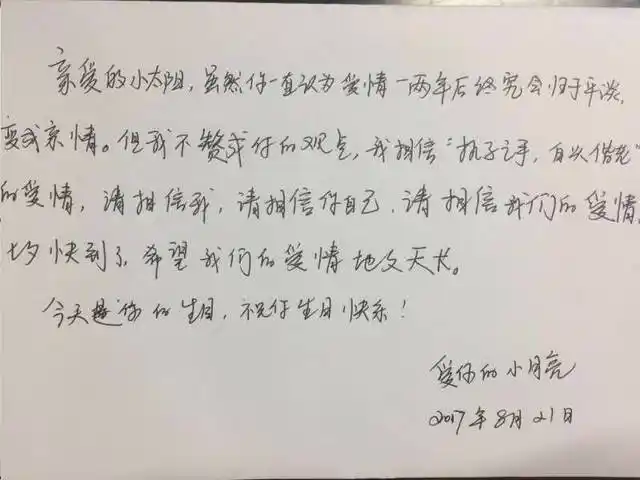 亲爱的小太阳，虽然你一直认为爱情一两年后终究会归于平淡，
变成亲情。但我不赞成你的观点，我相信“执子之手，白头偕老”
的爱情，请相信我，请相信你自己，请相信我们的爱情，
七夕快到了，希望我们的爱情地久天长。
今天是你的生日，祝你生日快乐！
爱你的小月亮
2017年8月21日